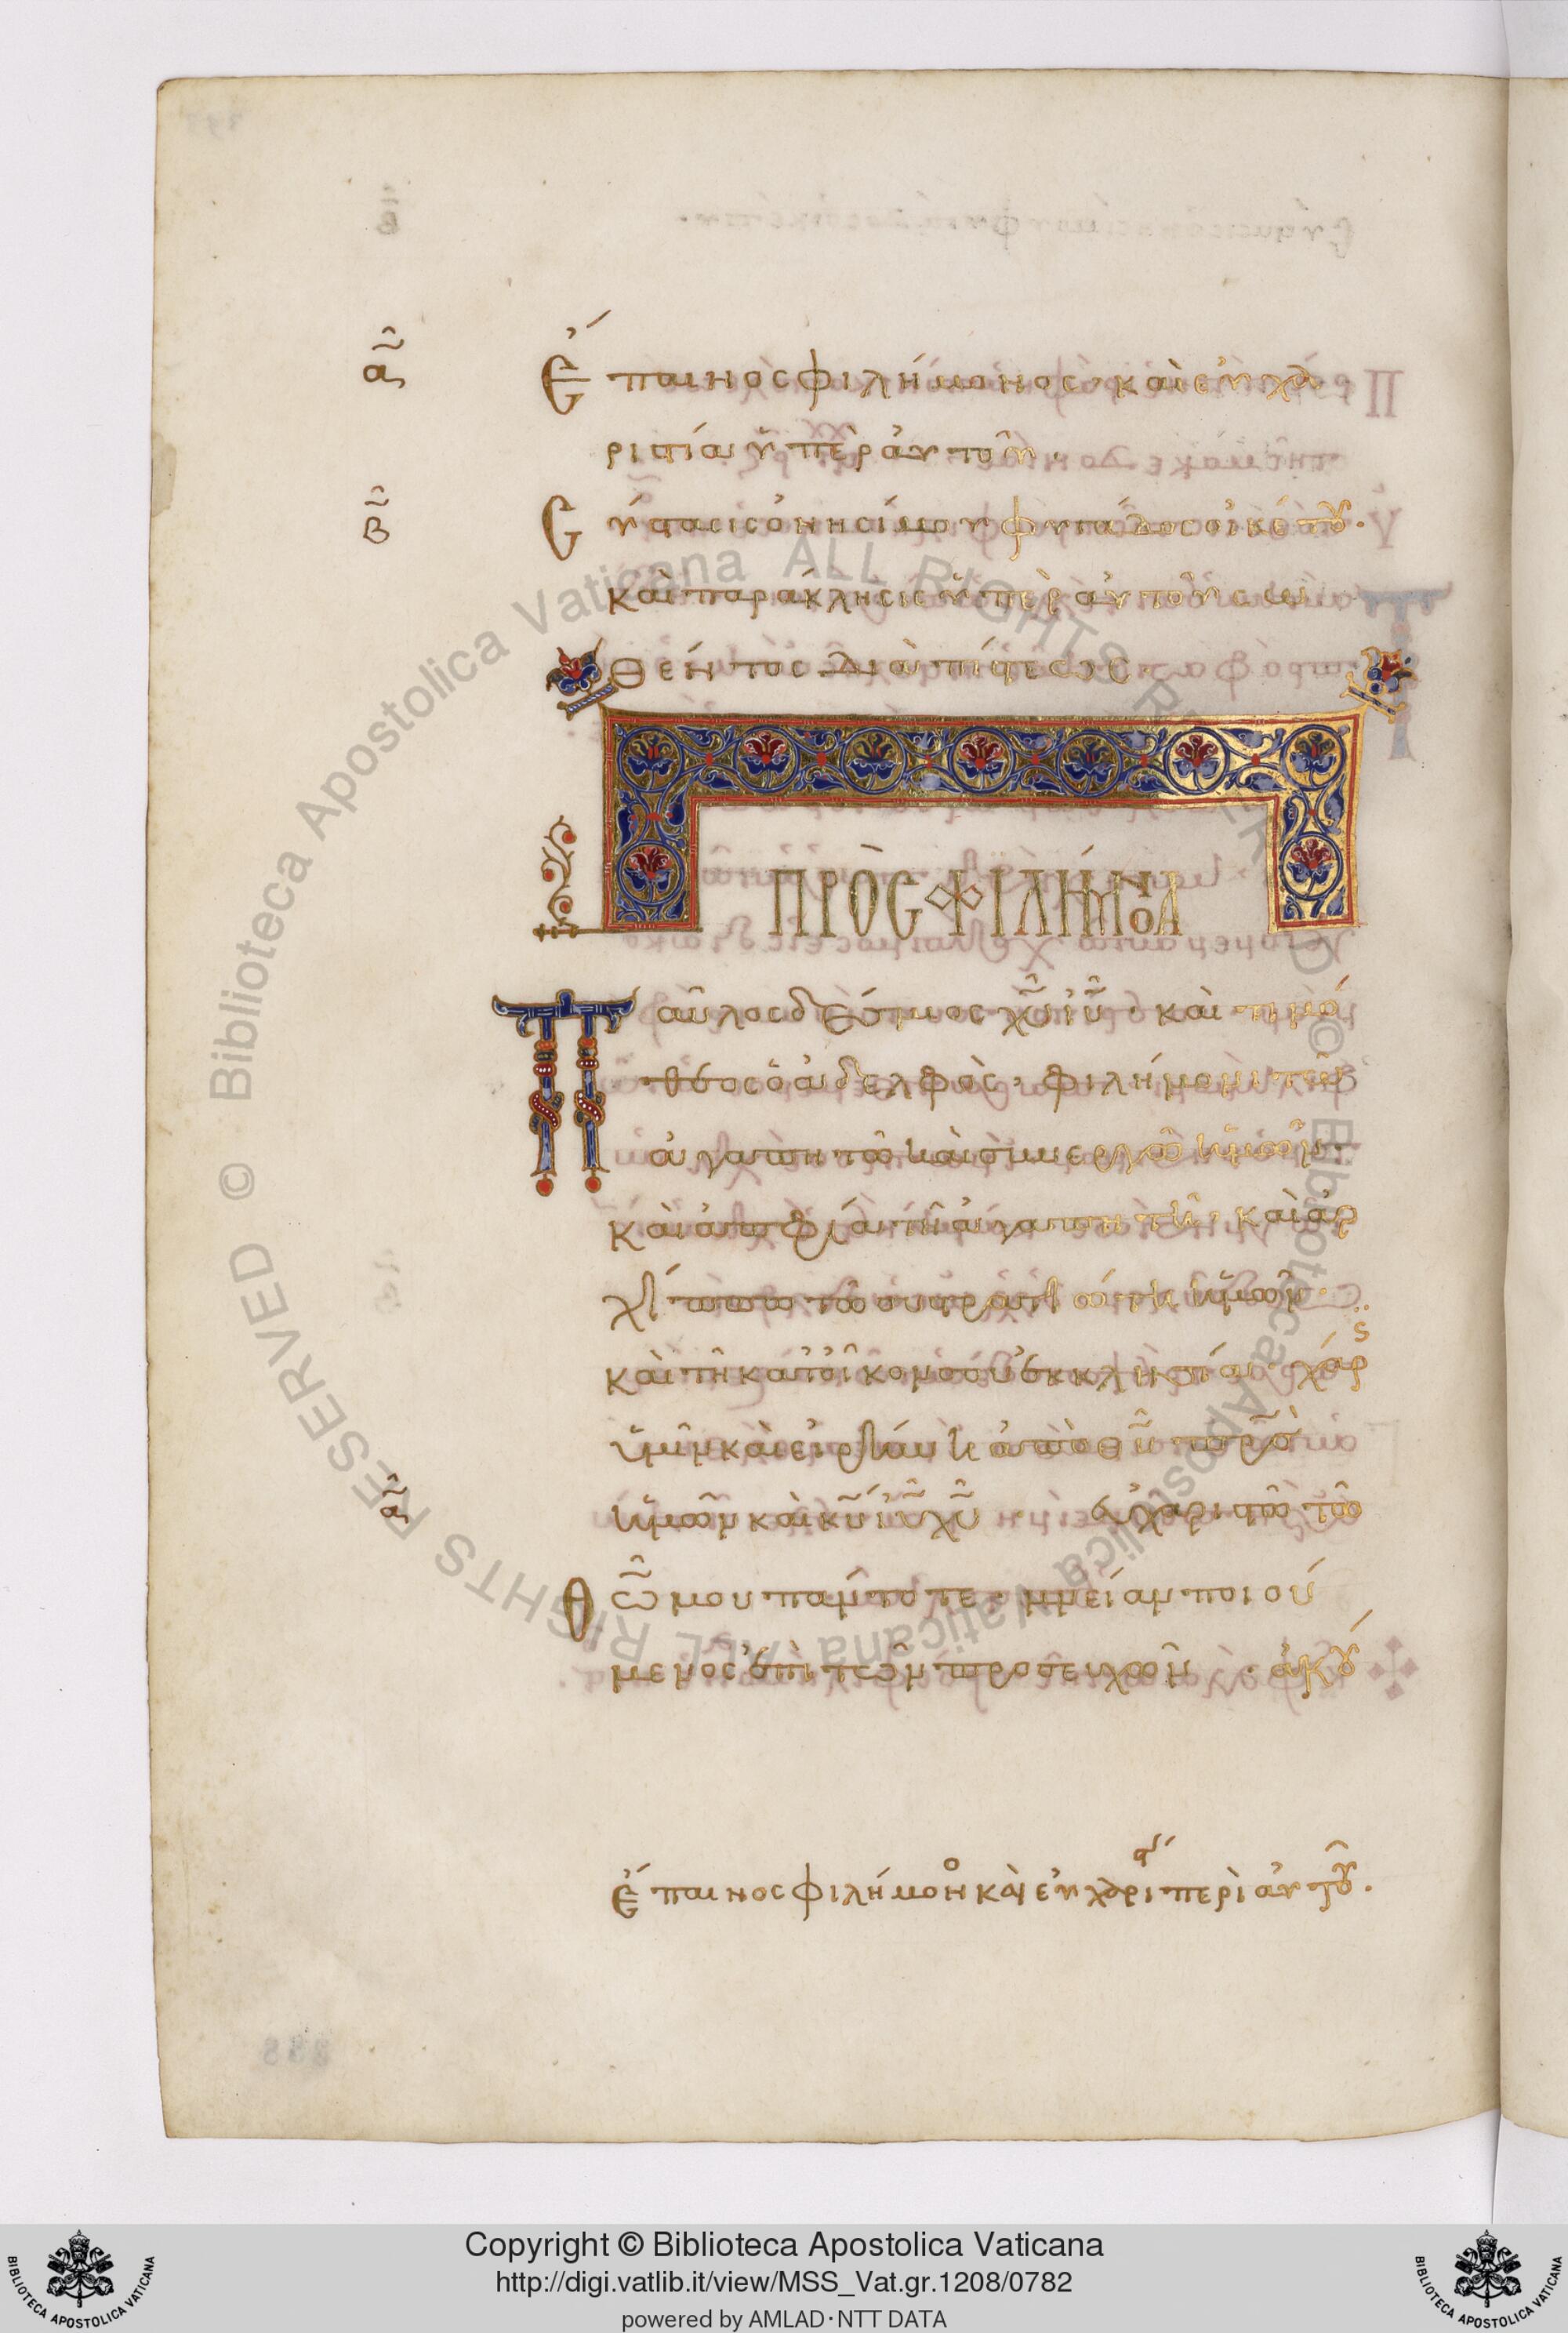 α
Ἔπαινος φιλήμονος· καὶ εὐχα
ριστία ὑπὲρ αὐτοῦ·
β
Σύστασις ὀνησίμου φυγάδος οἰκέτου·
καὶ παράκλησις ὑπὲρ αὐτοῦ σω
θέντος διὰ πίστεως
ΠΡῸΣ ΦΙΛΉΜΟΝΑ
Παῦλος δέσμιος χῦ ἰῦ· καὶ τιμό
θεος ὁ ἀδελφὸς· φιλήμονι τῶ
ἀγαπητῶ καὶ συνεργῶ ἡμῶν·
καὶ ἀπφία τῆ ἀγαπητῆ· καὶ ἀρ
χίππω τῶ συστρατιώτη ἡμῶν·
καὶ τῆ κατ' οἶκον σου ἐκκλησία· χάρις
ὑμῖν καὶ εἰρήνη ἀπὸ θῦ πρὸς
α
ἡμῶν καὶ κῦ ἰῦ χῦ εὐχαριστῶ τῶ
θῶ μου πάντοτε· μνείαν ποιού
μενος ἐπὶ τῶν προσευχῶν· ἀκού
Ἔπαινος φιλήμονο καὶ εὐχαριστ περὶ αὐτοῦ·
Copyright © Biblioteca Apostolica Vaticana
http://digi.vatlib.it/view/MSS_Vat.gr.1208/0782
powered by AMLAD·NTT DATA
BIBLIOTECA APOSTOLICA VATICANA
BIBLIOTECA APOSTOLICA VATICANA
© Biblioteca Apostolica Vaticana ALL RIGHTS RESERVED © Biblioteca Apostolica Vaticana ALL RIGHTS RESERVED